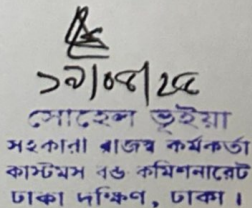 ১৯/০৪/২৫
সোহেল ভূইয়া
সহকারী রাজস্ব কর্মকর্তা
কাস্টমস বন্ড কমিশনারেট
ঢাকা দক্ষিণ, ঢাকা।